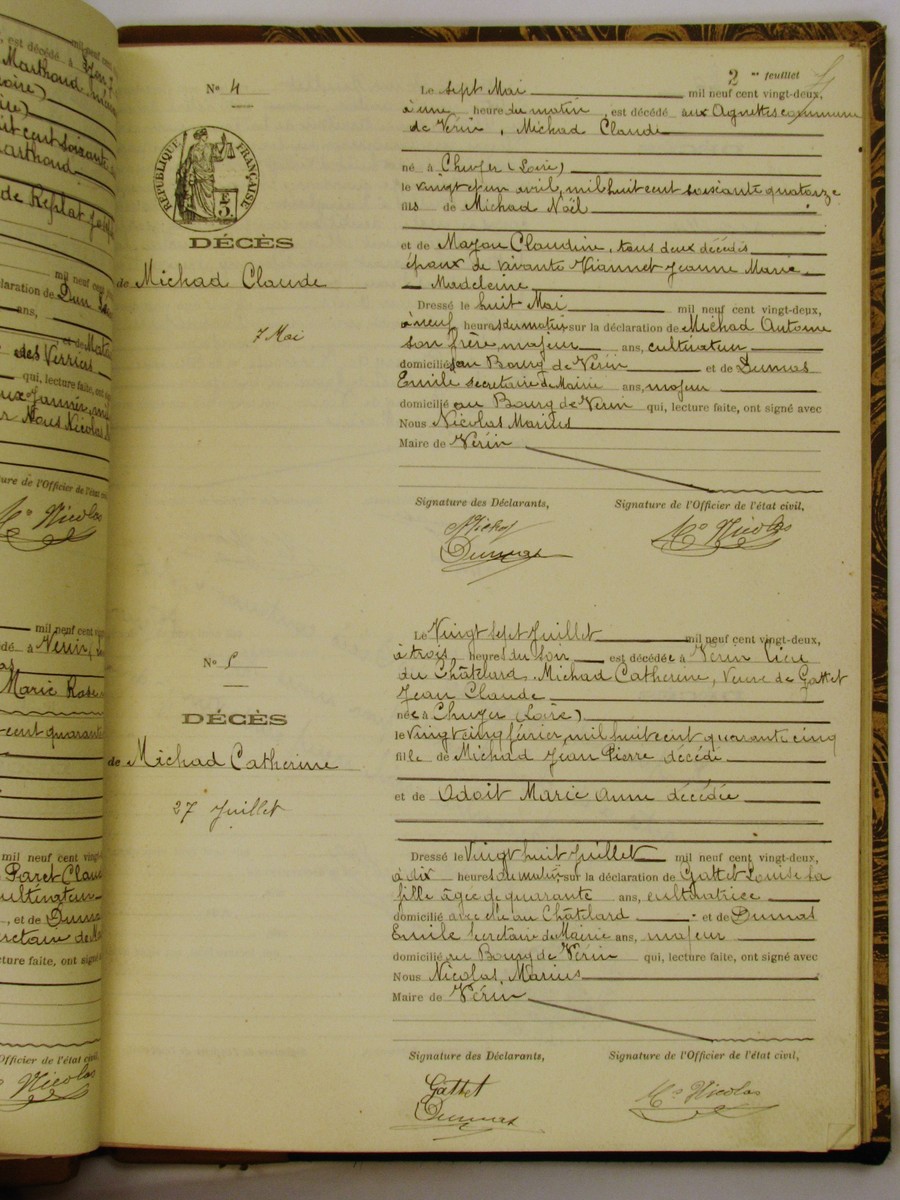 mil neuf cent
est décédé à
Marthoud
oire)
huit cent soixante
Marthoud
de Replat
mil neuf cent vingt-d
laration de Dun
ans,
et de
des Verrius
qui, lecture faite, ont
Janvier
Nous Nicolas
ure de l'Officier de l'état civil
Mo Nicolas
mil neuf cent vingt
édé à Verin
Marie Rose
cent quarante
mil neuf cent vingt-
Paret Claud
cultivateur
, et de Duma
secrétaire de Ma
cture faite, ont signé
Officier de l'état civil,
Nicolas
2me feuillet
No 4
RÉPUBLIQUE FRANÇAISE
DÉCÈS
de Michad Claude
7 Mai
Le sept Mai mil neuf cent vingt-deux,
à une heure du matin, est décédé aux Agnettes commune
de Vérin, Michad Claude
né à Chuyer (Loire)
le vingt et un avril, mil huit cent soixante quatorze
fils de Michad Noël
et de Mazou Claudine, tous deux décédés
époux de vivante Viannet Jeanne Marie
Madeleine
Dressé le huit Mai mil neuf cent vingt-deux,
à neuf heures du matin sur la déclaration de Michad Antoine
son frère, majeur ans, cultivateur
domicilié au Bourg de Vérin et de Dumas
Emile secrétaire de Mairie ans, majeur
domicilié au Bourg de Verin qui, lecture faite, ont signé avec
Nous Nicolas Marius
Maire de Vérin
Signature des Déclarants, Signature de l'Officier de l'état civil,
Michad Mo Nicolas
Dumas
No 5
DÉCÈS
de Michad Catherine
27 Juillet
Le Vingt sept Juillet mil neuf cent vingt-deux,
à trois heures du soir est décédée à Vérin lieu
du Châtelard, Michad Catherine, Veuve de Gattet
Jean Claude
née à Chuyer (Loire)
le vingt cinq février, mil huit cent quarante cinq
fille de Michad Jean Pierre décédé
et de Odoit Marie Anne décédée
Dressé le Vingt huit Juillet mil neuf cent vingt-deux,
à dix heures du matin, sur la déclaration de Gattet Louise sa
fille âgée de quarante ans, cultivatrice
domicilié avec elle au Châtelard et de Dumas
Emile Secrétaire de Mairie ans, majeur
domicilié au Bourg de Vérin qui, lecture faite, ont signé avec
Nous Nicolas, Marius
Maire de Vérin
Signature des Déclarants, Signature de l'Officier de l'état civil,
Gattet Mo Nicolas
Dumas